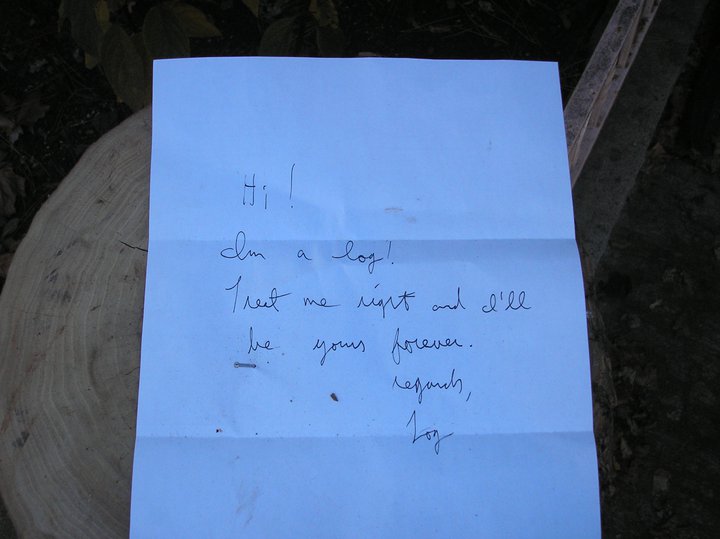 Hi!
Im a log!
Treat me right and I'll
be yours forever.
regards,
Log